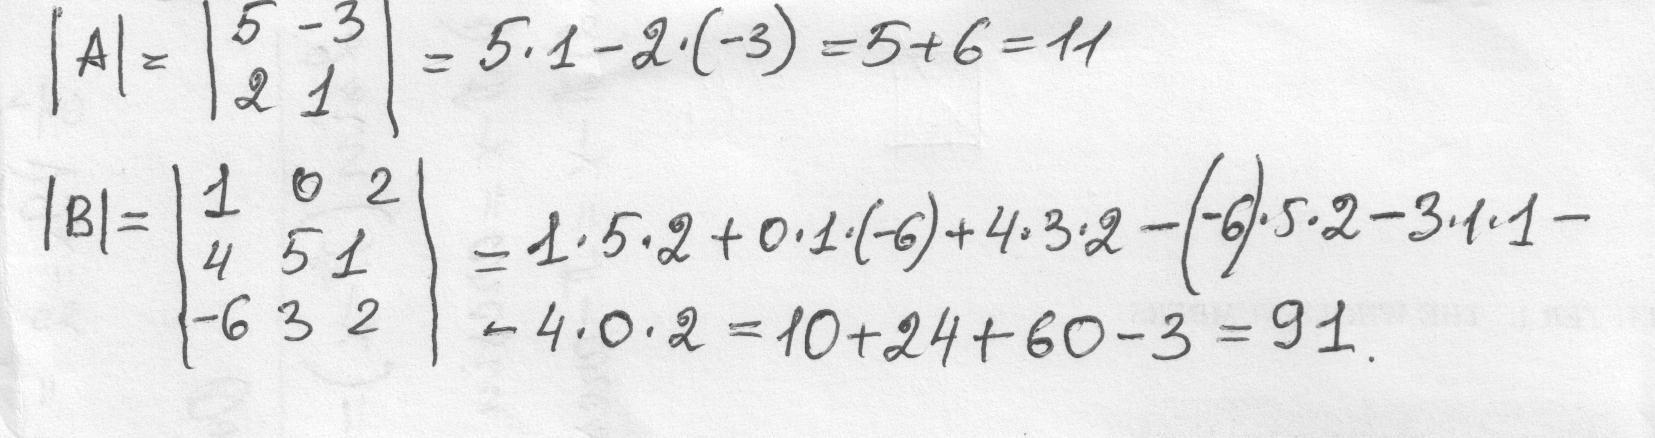 |A| = | 5 -3 | = 5·1 - 2·(-3) = 5+6 = 11
| 2 1 |
|B| = | 1 0 2 |
| 4 5 1 | = 1·5·2 + 0·1·(-6) + 4·3·2 - (-6)·5·2 - 3·1·1 -
| -6 3 2 | - 4·0·2 = 10+24+60-3 = 91.